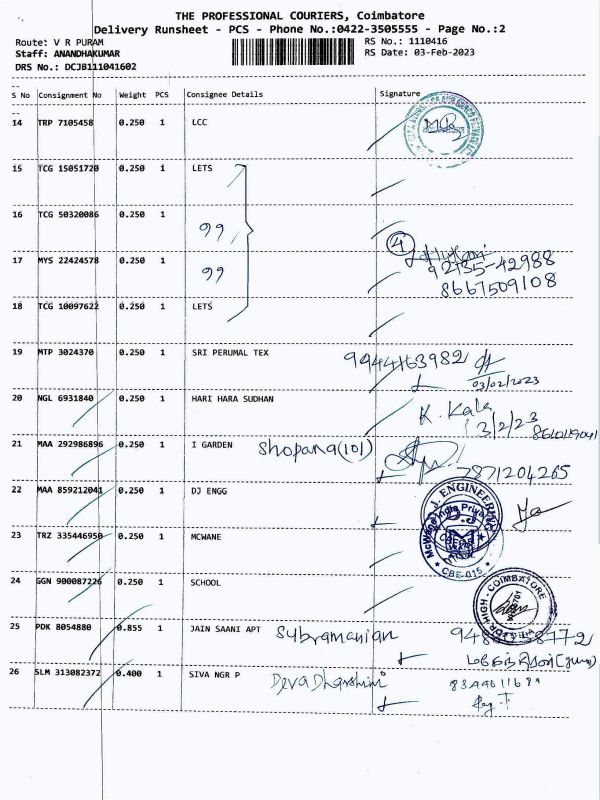 THE PROFESSIONAL COURIERS, Coimbatore
Delivery Runsheet - PCS - Phone No.:0422-3505555 - Page No.:2
Route: V R PURAM
RS No.: 1110416
Staff: ANANDHAKUMAR
RS Date: 03-Feb-2023
DRS No.: DCJB111041602
S No Consignment No Weight PCS Consignee Details Signature
14 TRP 7105458 0.250 1 LCC
15 TCG 15051720 0.250 1 LETS
16 TCG 50320086 0.250 1 99
4
17 MYS 22424578 0.250 1 99
92155-42988
8667509108
18 TCG 10097622 0.250 1 LETS
19 MTP 3024370 0.250 1 SRI PERUMAL TEX
03/02/2023
20 NGL 6931840 0.250 1 HARI HARA SUDHAN K. Kala
3/2/23
21 MAA 292986896 0.250 1 I GARDEN Shopana(101)
7871204265
22 MAA 859212041 0.250 1 DJ ENGG
D.J. ENGINEERING
23 TRZ 335446950 0.250 1 MCWANE
McWane India Priva
CBE-015
24 GGN 900087226 0.250 1 SCHOOL
COIMBATORE
25 PDK 8054880 0.855 1 JAIN SAANI APT Subramanian
26 SLM 313082372 0.400 1 SIVA NGR P Deva Dharshini